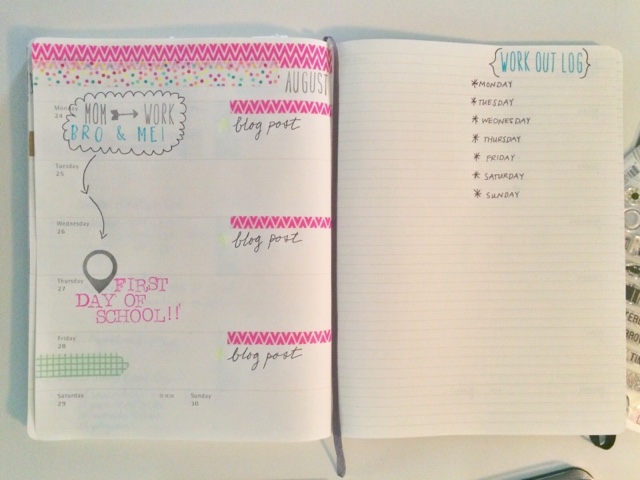 AUGUST
Monday
24
MOM WORK
BRO & ME!
blog post
Tuesday
25
Wednesday
26
blog post
Thursday
27
FIRST
DAY OF
SCHOOL!!
Friday
28
blog post
Saturday
29
Sunday
30
{WORK OUT LOG}
*MONDAY
*TUESDAY
*WEDNESDAY
*THURSDAY
*FRIDAY
*SATURDAY
*SUNDAY